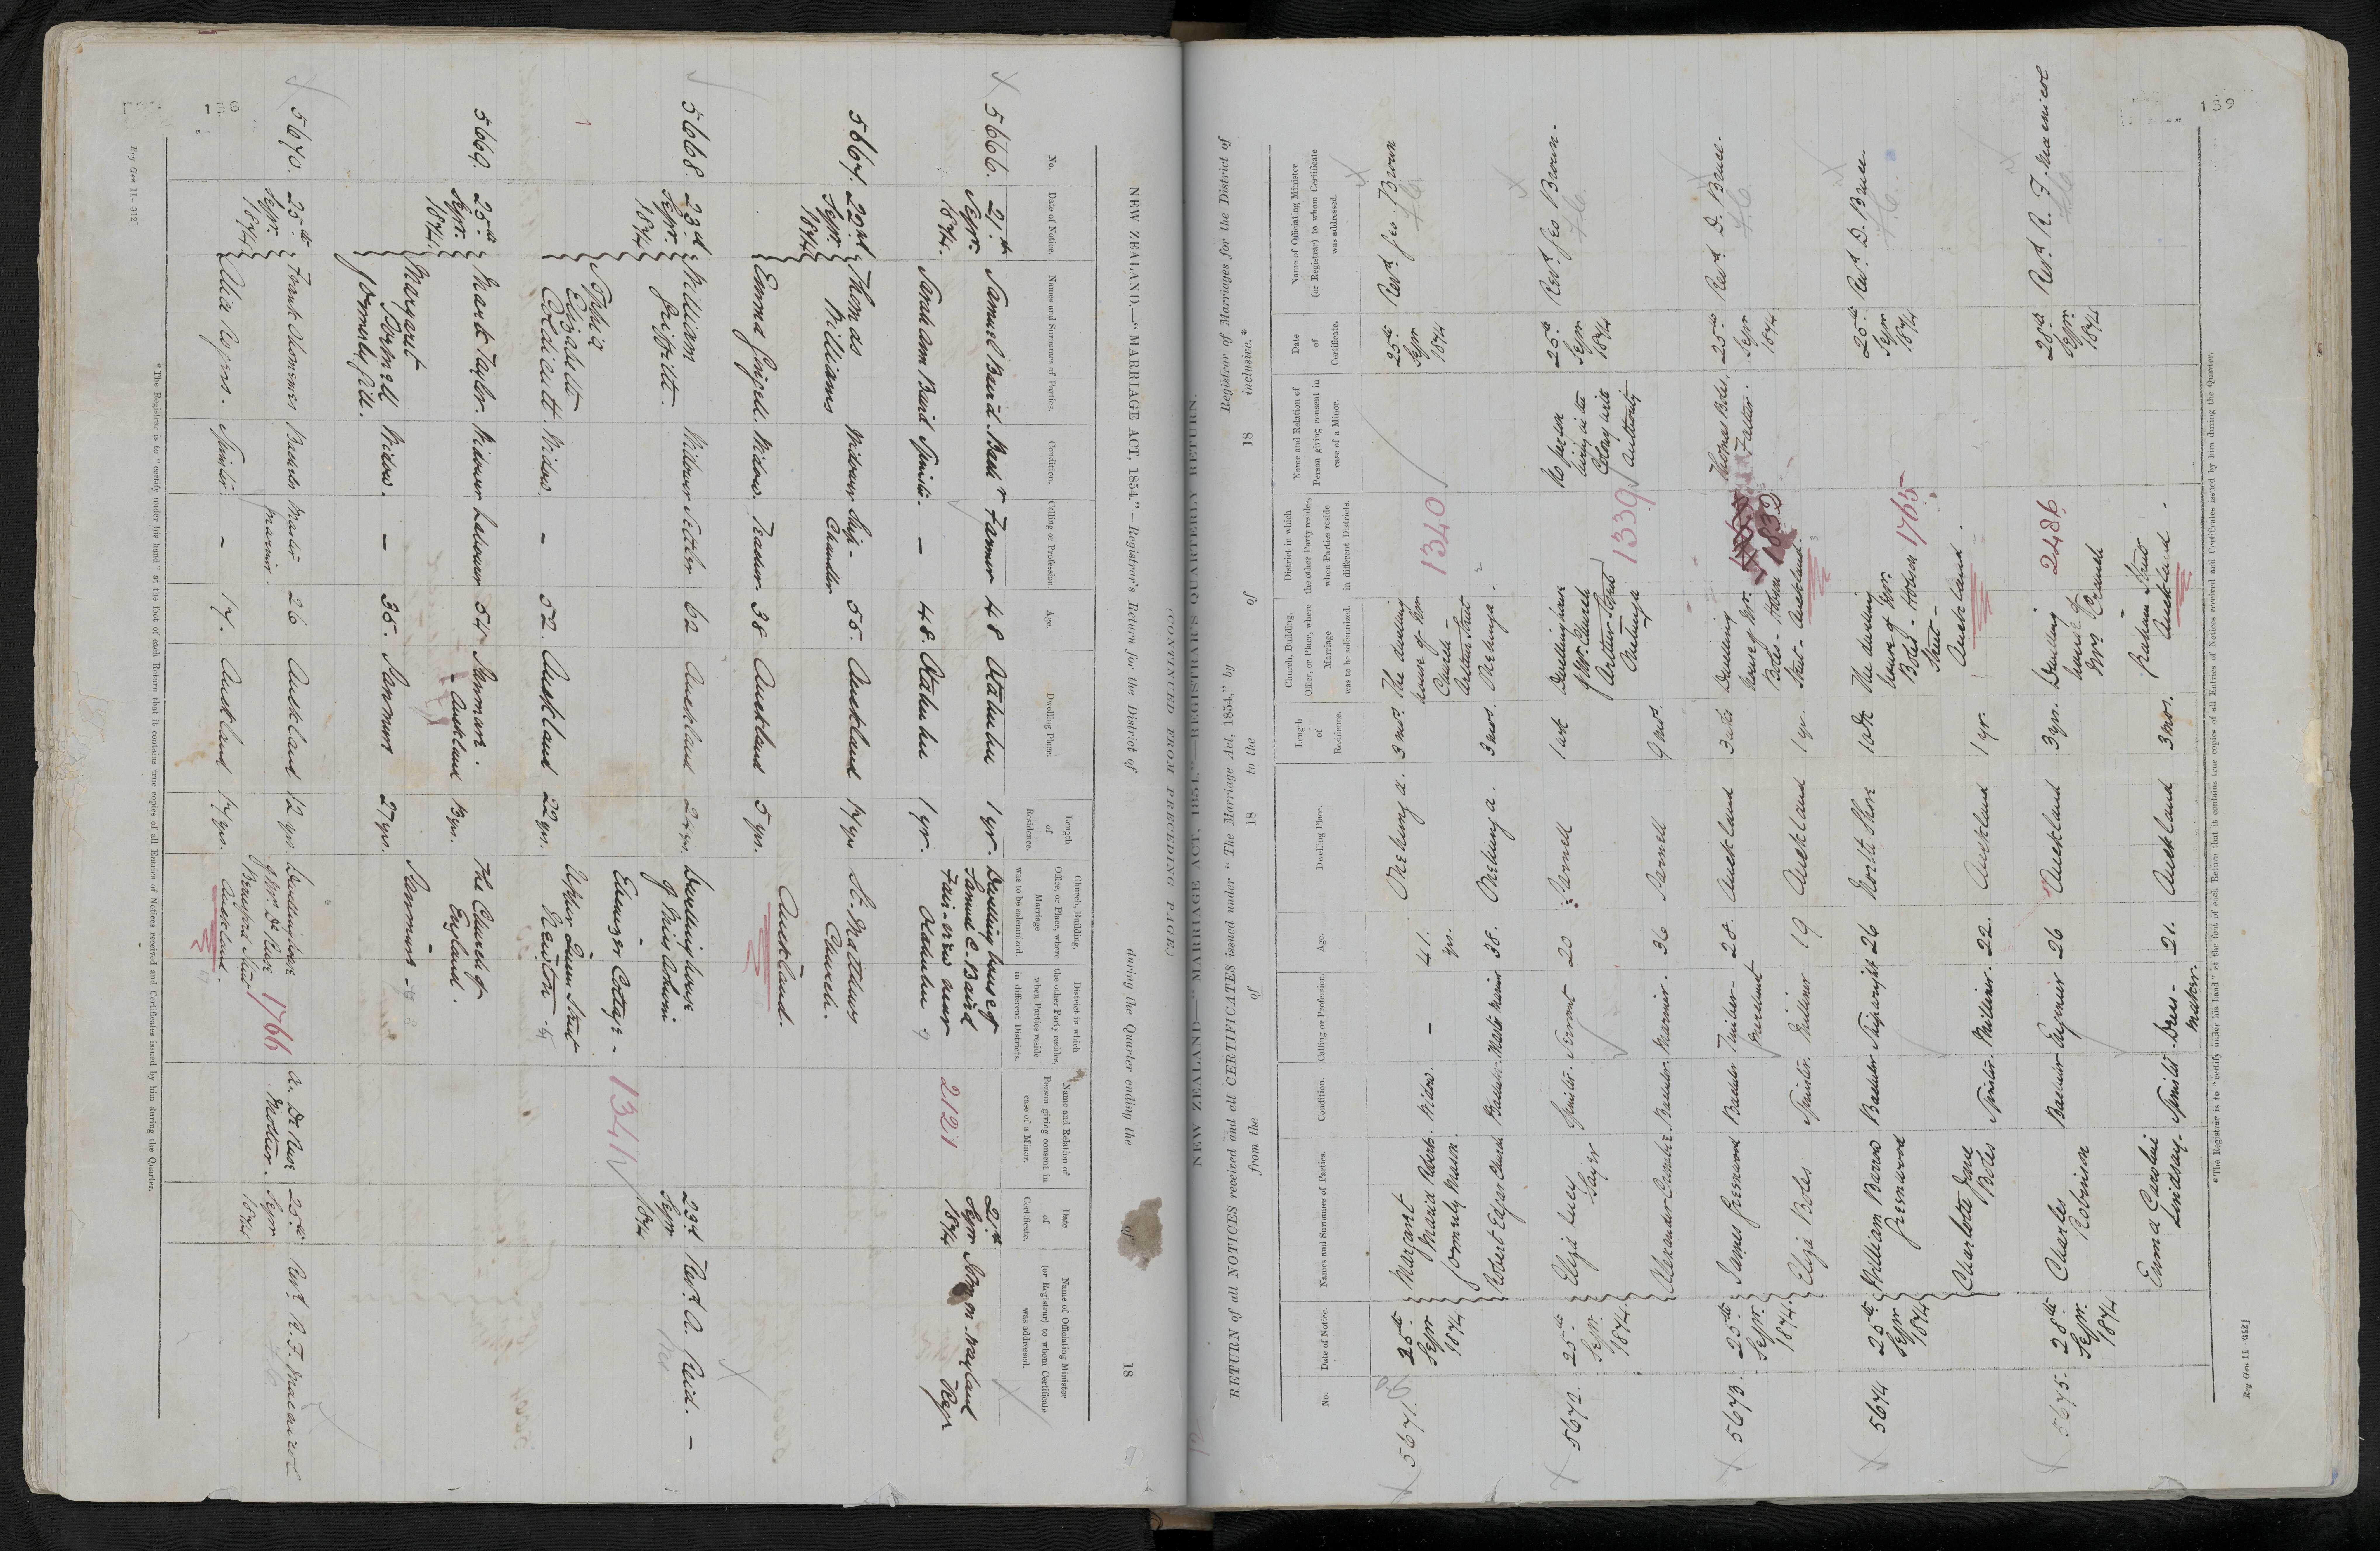 NEW ZEALAND.—"MARRIAGE ACT, 1854."—Registrar's Return for the District of during the Quarter ending the of 18
No.
Date of Notice.
Names and Surnames of Parties.
Condition.
Calling or Profession.
Age.
Dwelling Place.
Length of Residence.
Church, Building, Office, or Place, where Marriage was to be solemnized.
District in which the other Party resides, when Parties reside in different Districts.
Name and Relation of Person giving consent in case of a Minor.
Date of Certificate.
Name of Officiating Minister (or Registrar) to whom Certificate was addressed.
5666. 21st Sepr. 1874.
Samuel Baird Bachr Farmer 48 Otahuhu 1 yr. Dwelling house of Samuel C. Baird
Sarah Ann Baird Spinster. — 48. Otahuhu 1 yr.
Otahuhu
2121
21st Sepr 1874
5667. 22nd Sepr. 1874
Thomas Williams Widower Ship-Chandler 55. Auckland 17 yrs St. Matthews Church.
Emma Widow. 38 Auckland 5 yrs. Auckland.
5668. 23rd Sepr. 1874
William Griffith. Widower Settler 62 Auckland Dwelling house of Miss
Sophia Elizabeth Widow. — 52. Auckland 22 yrs.
Ebenezer Cottage -
Upper Queen Street
Newton.
1341
23rd Sepr 1874
Revd. A. Reid. —
5669. 25th Sepr. 1874.
Mark Taylor. Widower Labourer 54 Auckland 13 yrs. The Church of England.
Margaret formerly Gill. Widow. — 35. 27 yrs.
5670. 25th Sepr. 1874
Frank Bachelor Master mariner. 26 Auckland 12 yrs. Dwelling house
Spinster. — 17. Auckland 17 yrs. Auckland.
1766
Mother.
25th Sepr 1874
Revd. R. F. Macnicol
* The Registrar is to "certify under his hand" at the foot of each Return that it contains true copies of all Entries of Notices received and Certificates issued by him during the Quarter.
Reg Gen 11—312]
138
(CONTINUED FROM PRECEDING PAGE.)
NEW ZEALAND.—"MARRIAGE ACT, 1854."—REGISTRAR'S QUARTERLY RETURN.
RETURN of all NOTICES received and all CERTIFICATES issued under "The Marriage Act, 1854," by Registrar of Marriages for the District of
from the of 18 to the of 18 inclusive.*
No.
Date of Notice.
Names and Surnames of Parties.
Condition.
Calling or Profession.
Age.
Dwelling Place.
Length of Residence.
Church, Building, Office, or Place, where Marriage was to be solemnized.
District in which the other Party resides, when Parties reside in different Districts.
Name and Relation of Person giving consent in case of a Minor.
Date of Certificate.
Name of Officiating Minister (or Registrar) to whom Certificate was addressed.
5671. 25th Sepr 1874
Margaret Maria Roberts. formerly Mason. Widow. — 41. yrs. Onehunga. 3 mos. The dwelling house of Mr Church — Arthur Street
Robert Edgar Church Bachelor. Master Mariner 38. Onehunga. 3 mos. Onehunga.
1340
25th Sepr 1874
Revd. Geo. Brown
5672. 25th Sepr. 1874.
Eliza Lucy Sayer Spinster. Servant 20 Parnell 1 wk Dwelling house of Mr. Church Arthur Street Onehunga
Alexander Bachelor. Mariner. 36 Parnell 9 mos.
1339
No person living in the Colony with Authority
25th Sepr 1874
Revd. Geo Brown.
5673. 25th Sepr. 1874.
James Greenwood Bachelor Timber-Merchant 28. Auckland 3 wks Dwelling house of Mr. Boles - Hobson Street - Auckland.
Eliza Boles Spinster. Milliner 19 Auckland 1 yr.
1832
Thomas Boles, Father.
25th Sepr 1874
Revd. D. Bruce.
5674 25th Sepr 1874
William Barrow Greenwood Bachelor Shipwright 26 North Shore 10 wk The dwelling house of Mr. Boles - Hobson Street — Auckland.
Charlotte Jane Boles Spinster. Milliner. 22. Auckland 1 yr.
1765
25th Sepr 1874
Revd. D. Bruce.
5675. 28th Sepr. 1874
Charles Robinson Bachelor Engineer 26 Auckland 3 yrs. Dwelling house of Mrs
Emma Caroline Lindsay. Spinster. Dress-maker. 21. Auckland 3 mos. Graham Street Auckland.
2486
28th Sepr. 1874
Revd. R. F. Macnicol
*The Registrar is to "certify under his hand" at the foot of each Return that it contains true copies of all Entries of Notices received and Certificates issued by him during the Quarter.
Reg Gen 11—312]
139